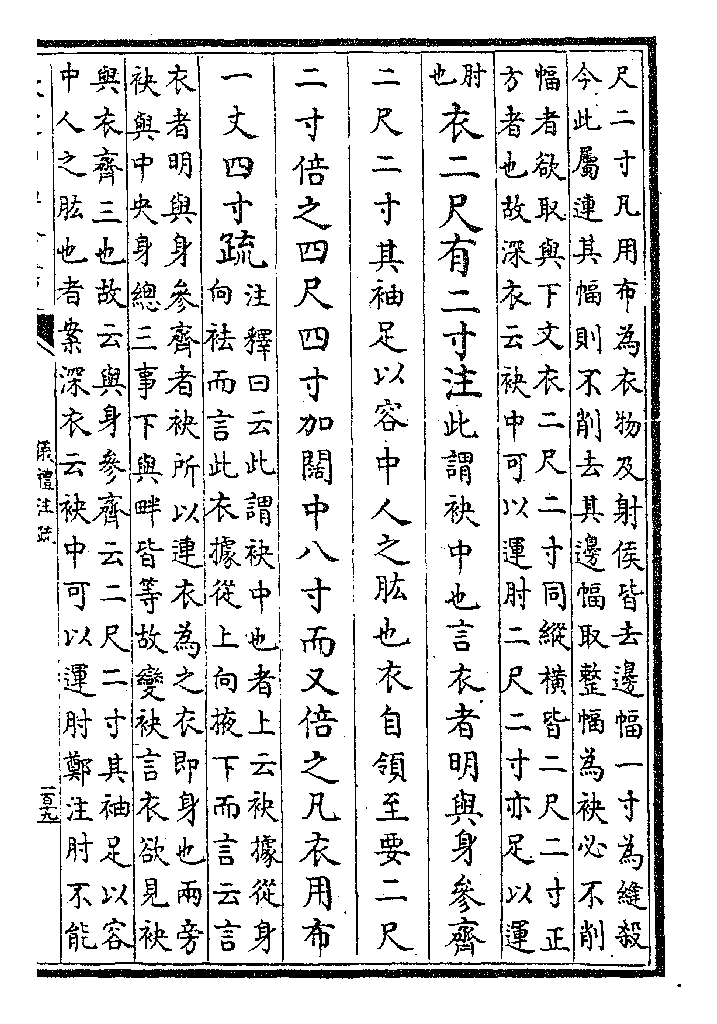 尺二寸凡用布為衣物及射侯皆去邊幅一寸為縫殺
今此屬連其幅則不削去其邊幅取整幅為袂必不削
幅者欲取與下文衣二尺二寸同縱橫皆二尺二寸正
方者也故深衣云袂中可以運肘二尺二寸亦足以運
肘也
衣二尺有二寸注此謂袂中也言衣者明與身參齊
二尺二寸其袖足以容中人之肱也衣自領至要二尺
二寸倍之四尺四寸加闊中八寸而又倍之凡衣用布
一丈四寸疏
注釋曰云此謂袂中也者上云袂據從身
向袪而言此衣據從上向掖下而言云言
衣者明與身參齊者袂所以連衣為之衣即身也兩旁
袂與中央身總三事下與畔皆等故變袂言衣欲見袂
與衣齊三也故云與身參齊云二尺二寸其袖足以容
中人之肱也者案深衣云袂中可以運肘鄭注肘不能
儀禮注疏